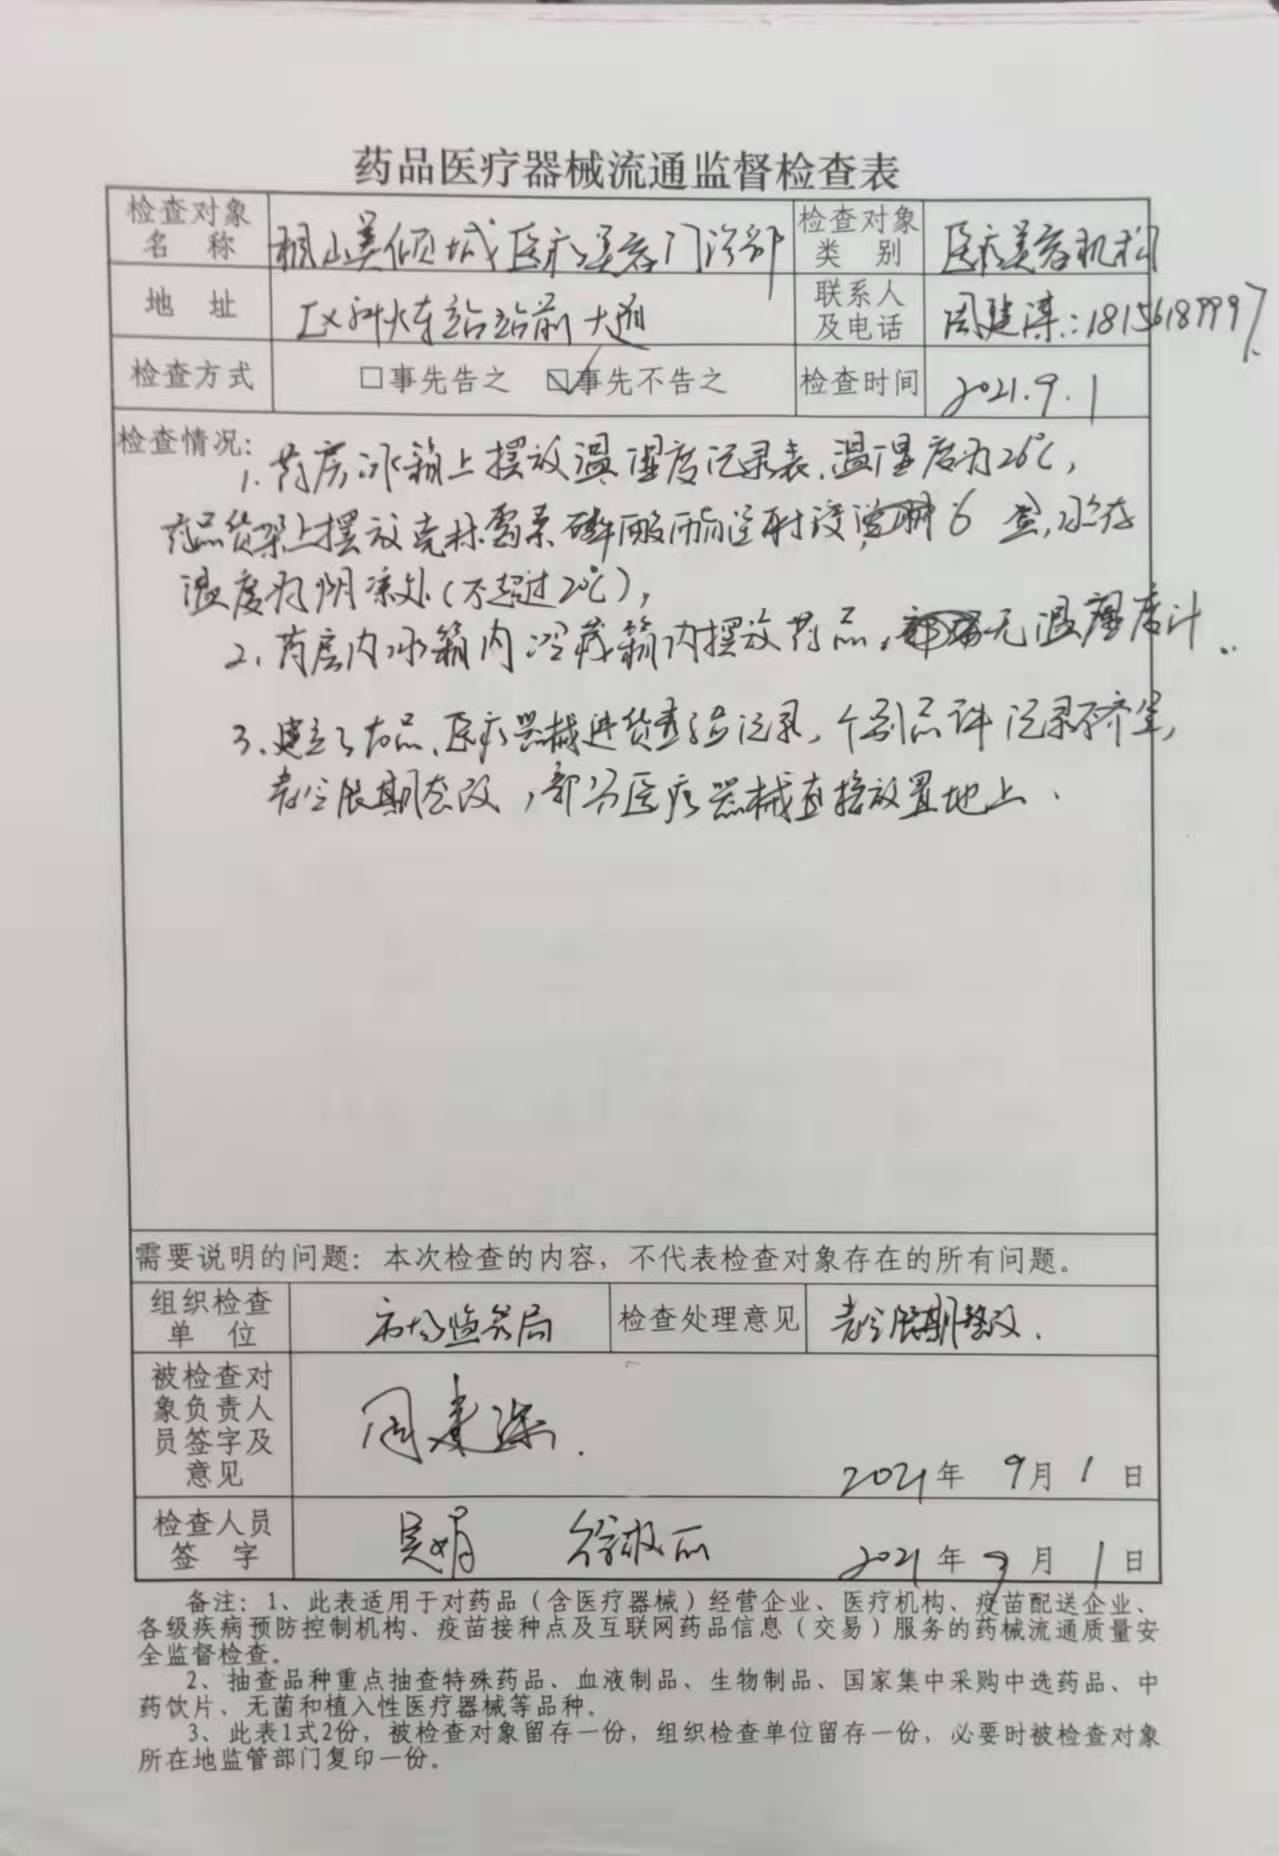 药品医疗器械流通监督检查表
检查对象名 称 美倾城医疗美容门诊部 检查对象类 别 医疗美容机构
地 址 火车站站前大道 联系人及电话 周建 :
检查方式 □事先告之 ☑事先不告之 检查时间 2021.9.1
检查情况:
1、药房冰箱上摆放温湿度记录表,温湿度为26℃,
药品货架上摆放克林霉素磷酸酯注射液 6 盒,贮存
温度为阴凉处(不超过20℃),
2、药房内冰箱内冷藏箱内摆放药品, 无温湿度计..
3、建立了药品、医疗器械进货查验记录,个别品种记录不齐全,
责令限期整改,部分医疗器械直接放置地上.
需要说明的问题:本次检查的内容,不代表检查对象存在的所有问题。
组织检查单 位 市场监管局 检查处理意见 责令限期整改.
被检查对象负责人员签字及意见 周建 . 2021年 9月 1 日
检查人员签 字 吴娟 徐 2021年 9 月 1 日
备注:1、此表适用于对药品(含医疗器械)经营企业、医疗机构、疫苗配送企业、
各级疾病预防控制机构、疫苗接种点及互联网药品信息(交易)服务的药械流通质量安
全监督检查。
2、抽查品种重点抽查特殊药品、血液制品、生物制品、国家集中采购中选药品、中
药饮片、无菌和植入性医疗器械等品种。
3、此表1式2份,被检查对象留存一份,组织检查单位留存一份,必要时被检查对象
所在地监管部门复印一份。